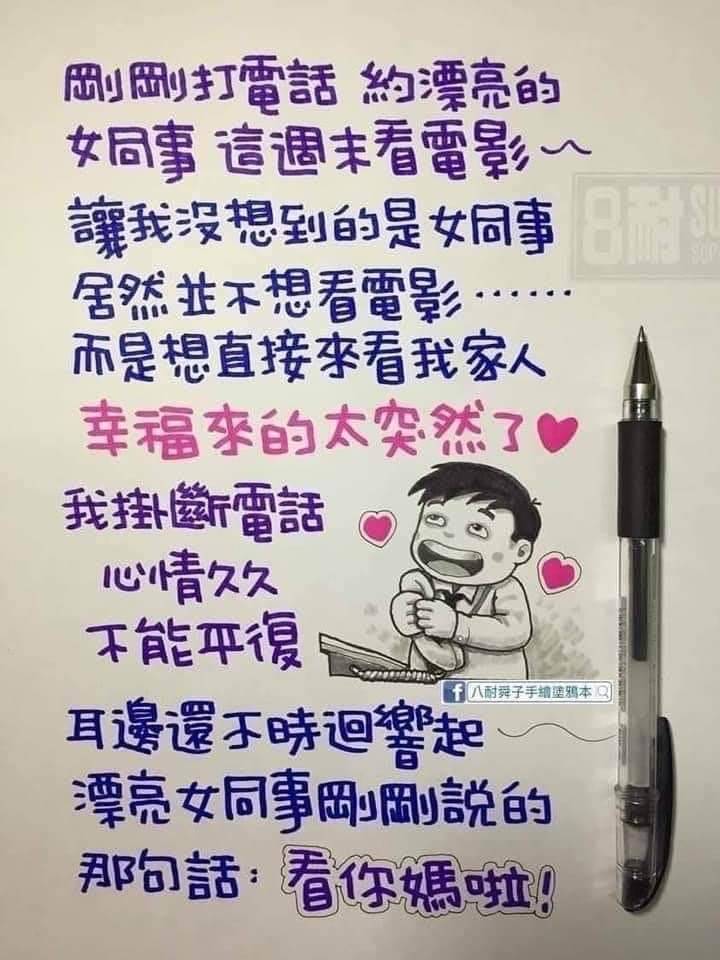 剛剛打電話 約漂亮的
女同事 這週末看電影～
讓我沒想到的是女同事
居然並不想看電影……
而是想直接來看我家人
幸福來的太突然了♥
我掛斷電話
心情久久
不能平復
八耐舜子手繪塗鴉本
耳邊還不時迴響起～
漂亮女同事剛剛說的
那句話：看你媽啦!
8耐
SU
SUP